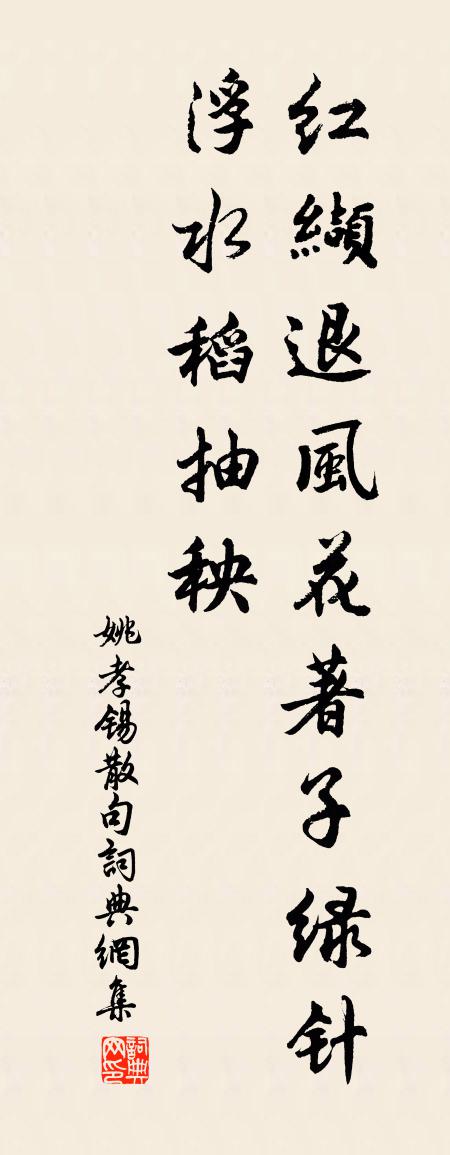 红纈退風花著子绿针
浮水稻抽秧
姚孝锡散句詞典網集
詞典网印